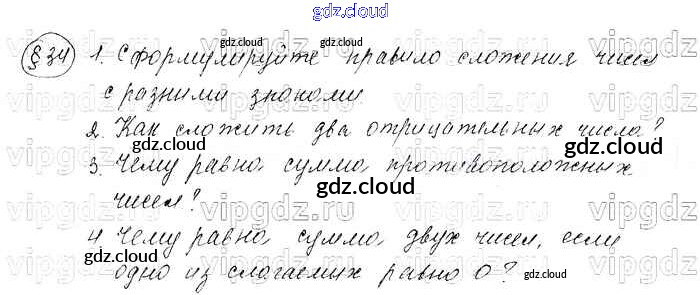 gdz.cloud
§34 1. Сформулируйте правило сложения чисел
gdz.cloud gdz.cloud
с разными знаками
vipgdz.vipgdz.vipgdz.vipgdz.vipgdz
2. Как сложить два отрицательных числа?
3. Чему равна сумма противоположных
gdz.cloud gdz.cloud
чисел?
4. Чему равна сумма двух чисел, если
одно из слагаемых равно 0?
gdz.cloud gdz.cloud